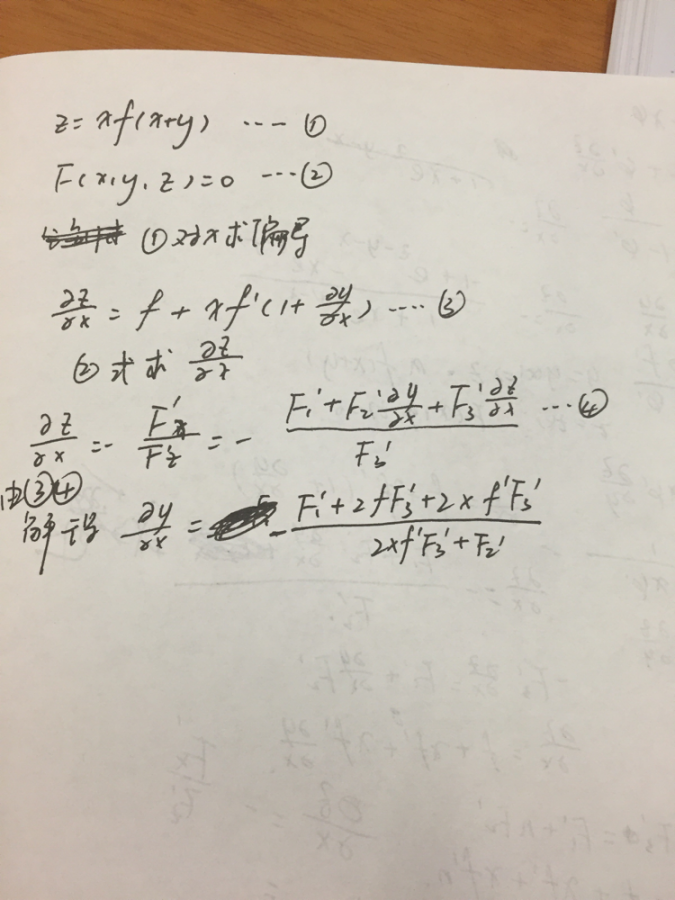 z = xf(x+y) ---- ①
F(x,y,z)=0 ---- ②
①对x求偏导
∂z/∂x = f + xf'(1+ ∂y/∂x) ---- ③
②式求 ∂z/∂x
∂z/∂x = - F'x/F'z = - (F₁' + F₂' ∂y/∂x + F₃' ∂z/∂x)/F₃' ---- ④
由③④
解得 ∂y/∂x = - (F₁' + 2fF₃' + 2xf'F₃')/(2xf'F₃' + F₂')